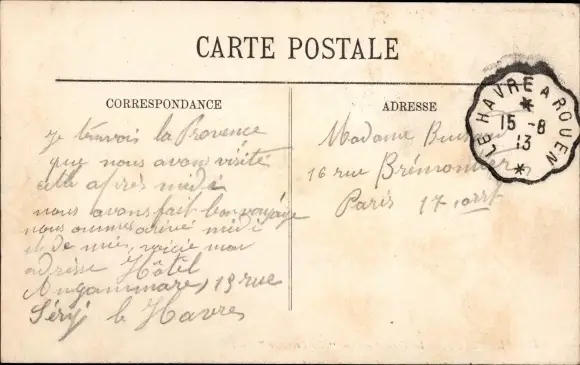 CARTE POSTALE
CORRESPONDANCE
ADRESSE
LE HAVRE A ROUEN
15 -8
13
je t'envois la Provence
que nous avons visité
cette après midi
nous avons fait bon voyage
nous sommes arrivé midi
et demie, voicie mon
adresse Hôtel
19 rue
Séry le Havre
Madame
16 rue Brémontier
Paris 17 arrt